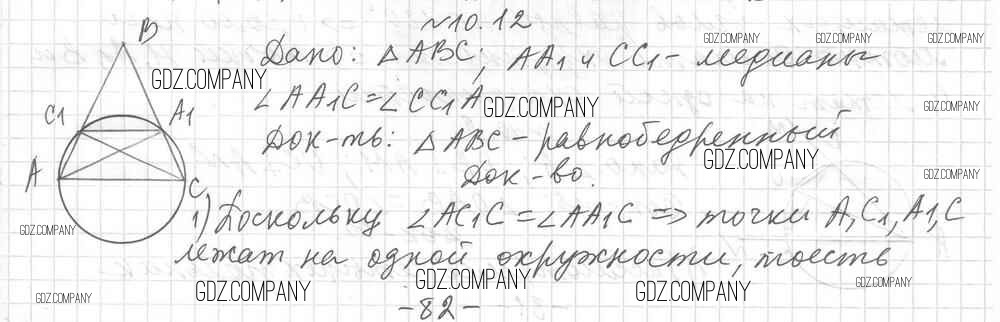 №10.12
Дано: △ABC; AA1 и CC1 - медианы
∠AA1C=∠CC1A
Док-ть: △ABC - равнобедренный
Док-во.
1) Поскольку ∠AC1C=∠AA1C => точки A, C1, A1, C
лежат на одной окружности, тоесть
-82-
B
C1
A1
A
C
GDZ.COMPANY
GDZ.COMPANY
GDZ.COMPANY
GDZ.COMPANY
GDZ.COMPANY
GDZ.COMPANY
GDZ.COMPANY
GDZ.COMPANY
GDZ.COMPANY
GDZ.COMPANY
GDZ.COMPANY
GDZ.COMPANY
GDZ.COMPANY
GDZ.COMPANY
GDZ.COMPANY